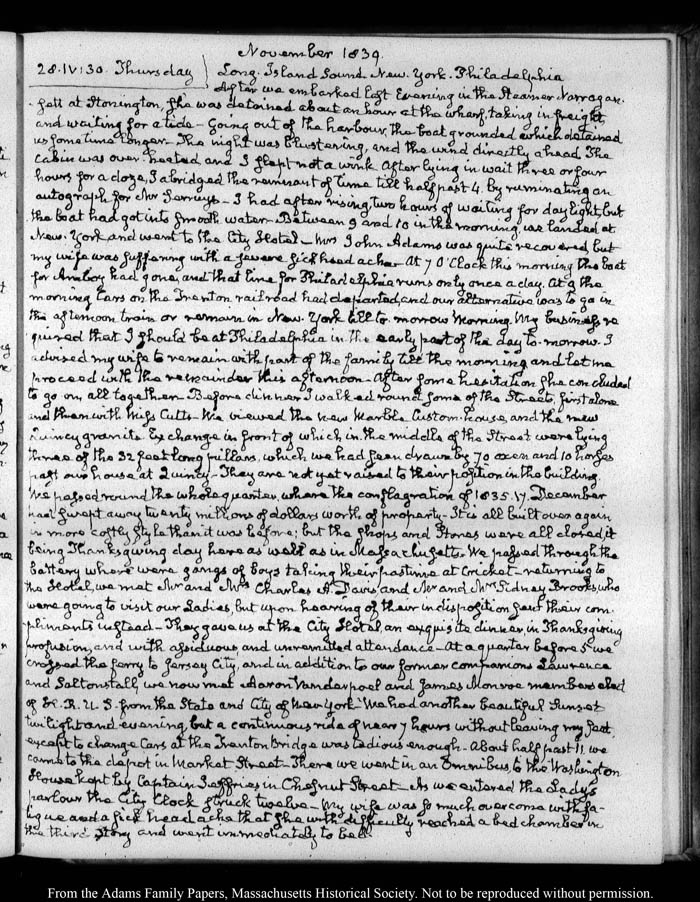 November 1839.
28. IV:30. Thursday Long-Island Sound. New-York. Philadelphia
After we embarked last Evening in the Steamer Narragan-
sett at Stonington, she was detained about an hour at the wharf, taking in freight,
and waiting for a tide— Going out of the harbour, the boat grounded which detained
us some time longer— The night was blustering, and the wind directly ahead. The
cabin was over-heated and I slept not a wink. After lying in wait three or four
hours for a doze, I abridged the remnant of time till half past 4. by ruminating an
autograph for Mr — I had after rising two hours of waiting for day light, but
the boat had got into smooth water— Between 9 and 10 in the morning, we landed at
New-York and went to the City Hotel— Mrs John Adams was quite recovered but
my wife was suffering with a severe sick head ache— At 7 O'Clock this morning the boat
for Amboy had gone, and that line for Philadelphia runs only once a day. At 9 the
morning Cars on the Trenton railroad had departed, and our alternative was to go in
the afternoon train or remain in New-York till to-morrow Morning. My business re-
quired that I should be at Philadelphia in the early part of the day to-morrow. I
advised my wife to remain with part of the family till the morning and let me
proceed with the remainder this afternoon— After some hesitation she concluded
to go on, all together. Before dinner I walked round some of the Streets, first alone
and then with Miss Cutts— We viewed the new Marble Custom-house, and the new
Quincy granite Exchange in front of which in the middle of the Street were lying
three of the 32 feet long pillars, which we had seen drawn by 70 oxen and 10 horses
past our house at Quincy— They are not yet raised to their position in the building.
We passed round the whole quarter, where the conflagration of 1835. 17. December
had swept away twenty millions of dollars worth of property— It is all built over again
in more costly style than it was before; but the shops and Stores were all closed, it
being Thanksgiving day here as well as in Massachusetts. We passed through the
battery where were gangs of boys taking their pastime at Cricket— returning to
the Hotel, we met Mr and Mrs Charles A. Davis, and Mr and Mrs Sidney Brooks, who
were going to visit our Ladies, but upon hearing of their indisposition sent their com-
pliments instead— They gave us at the City Hotel, an exquisite dinner, in Thanksgiving
profusion, and with assiduous and unremitted attendance— At a quarter before 5 we
crossed the ferry to Jersey City, and in addition to our former companions Lawrence
and Saltonstall, we now met Aaron Vanderpoel and James Monroe members elect
of H. R. U. S. from the State and City of New-York— We had another beautiful Sunset
twilight and evening, but a continuous ride of near 7 hours without leaving my seat,
except to change Cars at the Trenton Bridge was tedious enough— About half past 11. we
came to the depot in Market Street— There we went in an Omnibus to the Washington
House kept by Captain Jeffries in Chesnut Street— As we entered the Lady's
parlour the City Clock struck twelve— My wife was so much overcome with fa-
tigue and a sick head ache that she with difficulty reached a bed chamber in
the third story and went immediately to bed.
From the Adams Family Papers, Massachusetts Historical Society. Not to be reproduced without permission.